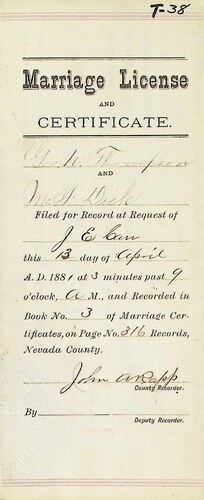 T-38
Marriage License
AND
CERTIFICATE.
Geo. W. Thompson
AND
Dick
Filed for Record at Request of
J E Carr
this 13 day of April
A. D. 1881 at 3 minutes past 9
o'clock, A M., and Recorded in
Book No. 3 of Marriage Cer-
tificates, on Page No. 316 Records,
Nevada County.
John A Rapp
County Recorder.
By
Deputy Recorder.